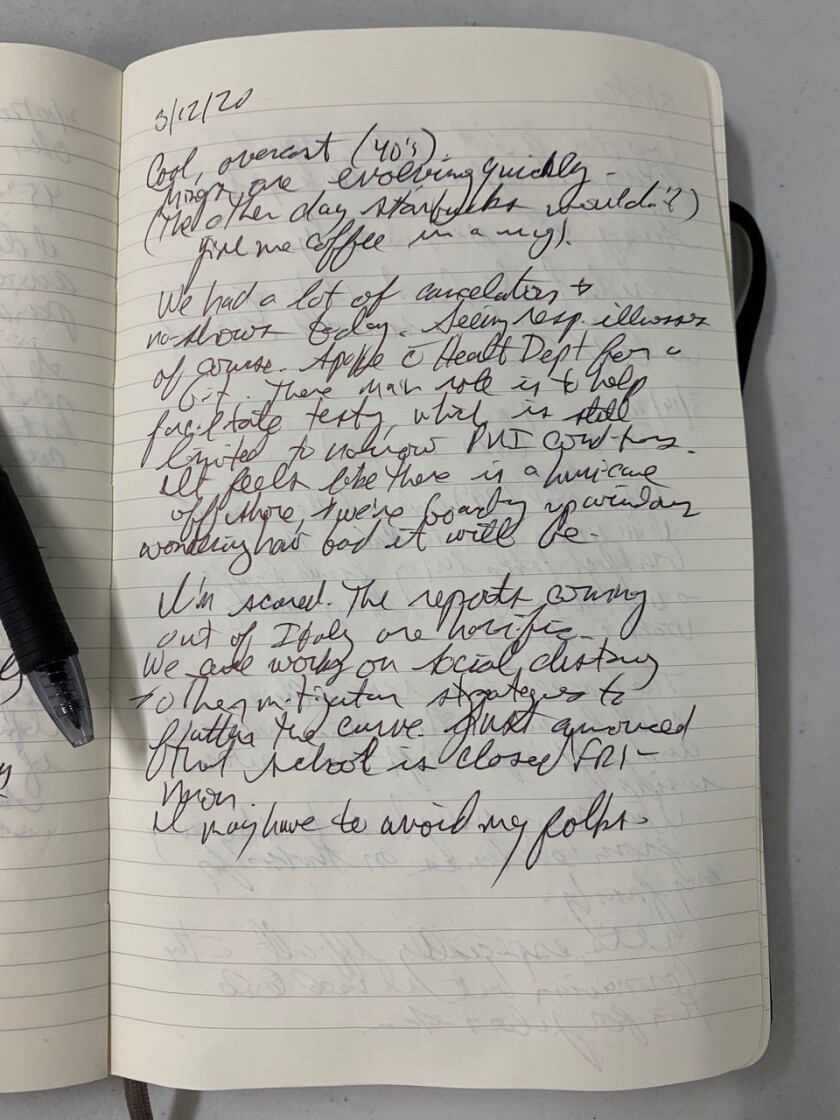 3/12/20
Cool, overcast (40's)
Things are evolving quickly.
(The other day Starbucks wouldn't)
give me coffee in a mug).
We had a lot of cancelations +
no-shows today. Seeing resp. illnesses
of course. Spoke c̄ Health Dept for a
bit. There main role is to help
facilitate testing, which is still
limited to narrow PUI conditions.
It feels like there is a hurricane
off shore, + we're boarding up windows
wondering how bad it will be.
I'm scared. The reports coming
out of Italy are horrific.
We are working on social distancing
+ other mitigation strategies to
flatten the curve. Just announced
that school is closed FRI-
Mon.
I may have to avoid my folks.